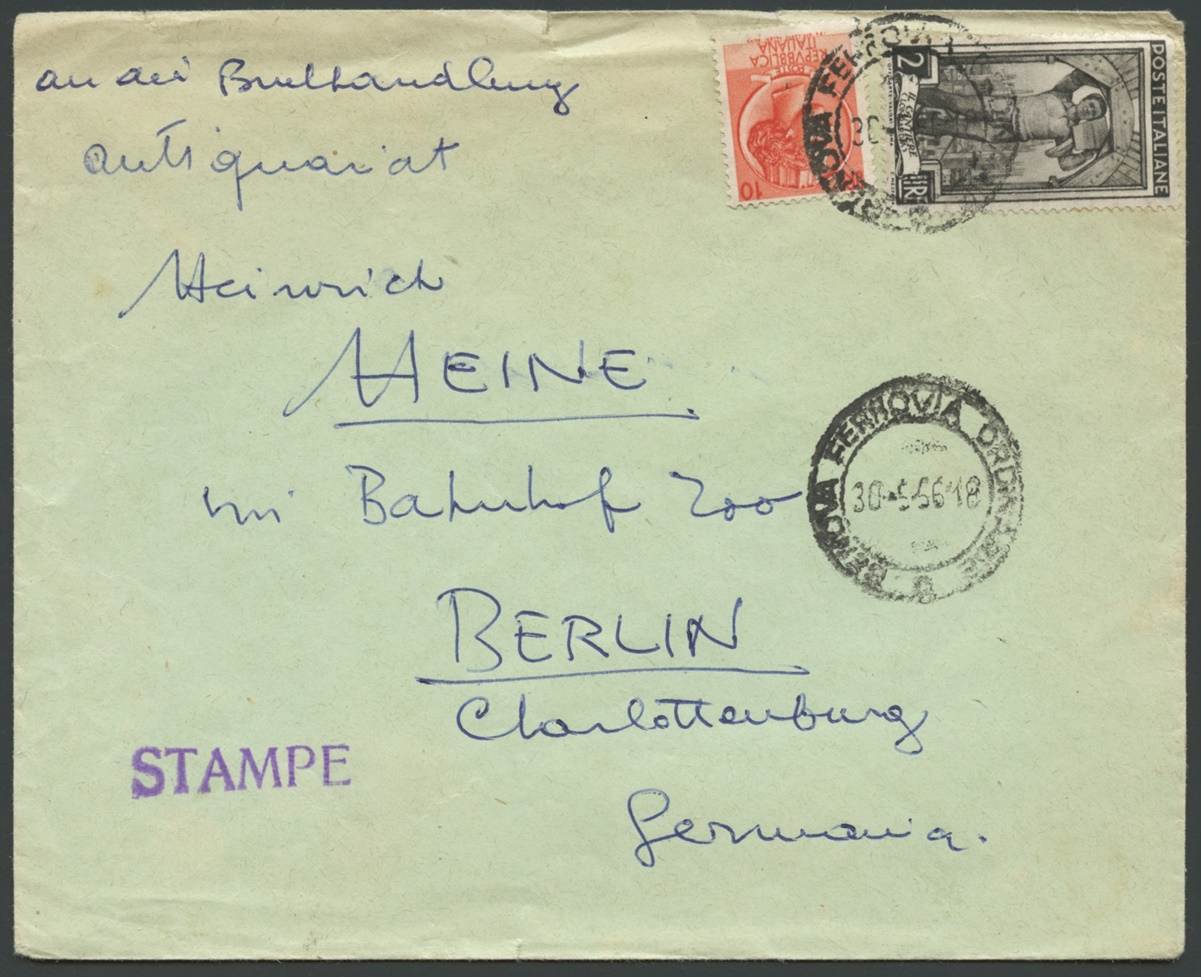 an die Buchhandlung
Antiquariat
Heinrich
HEINE
im Bahnhof Zoo
BERLIN
Charlottenburg
Germania.
STAMPE
POSTE ITALIANE
2
LIRE
10
POSTE
REPVBBLICA
ITALIANA
GENOVA FERROVIA
GENOVA FERROVIA ORDINARIE
30-5-56 18